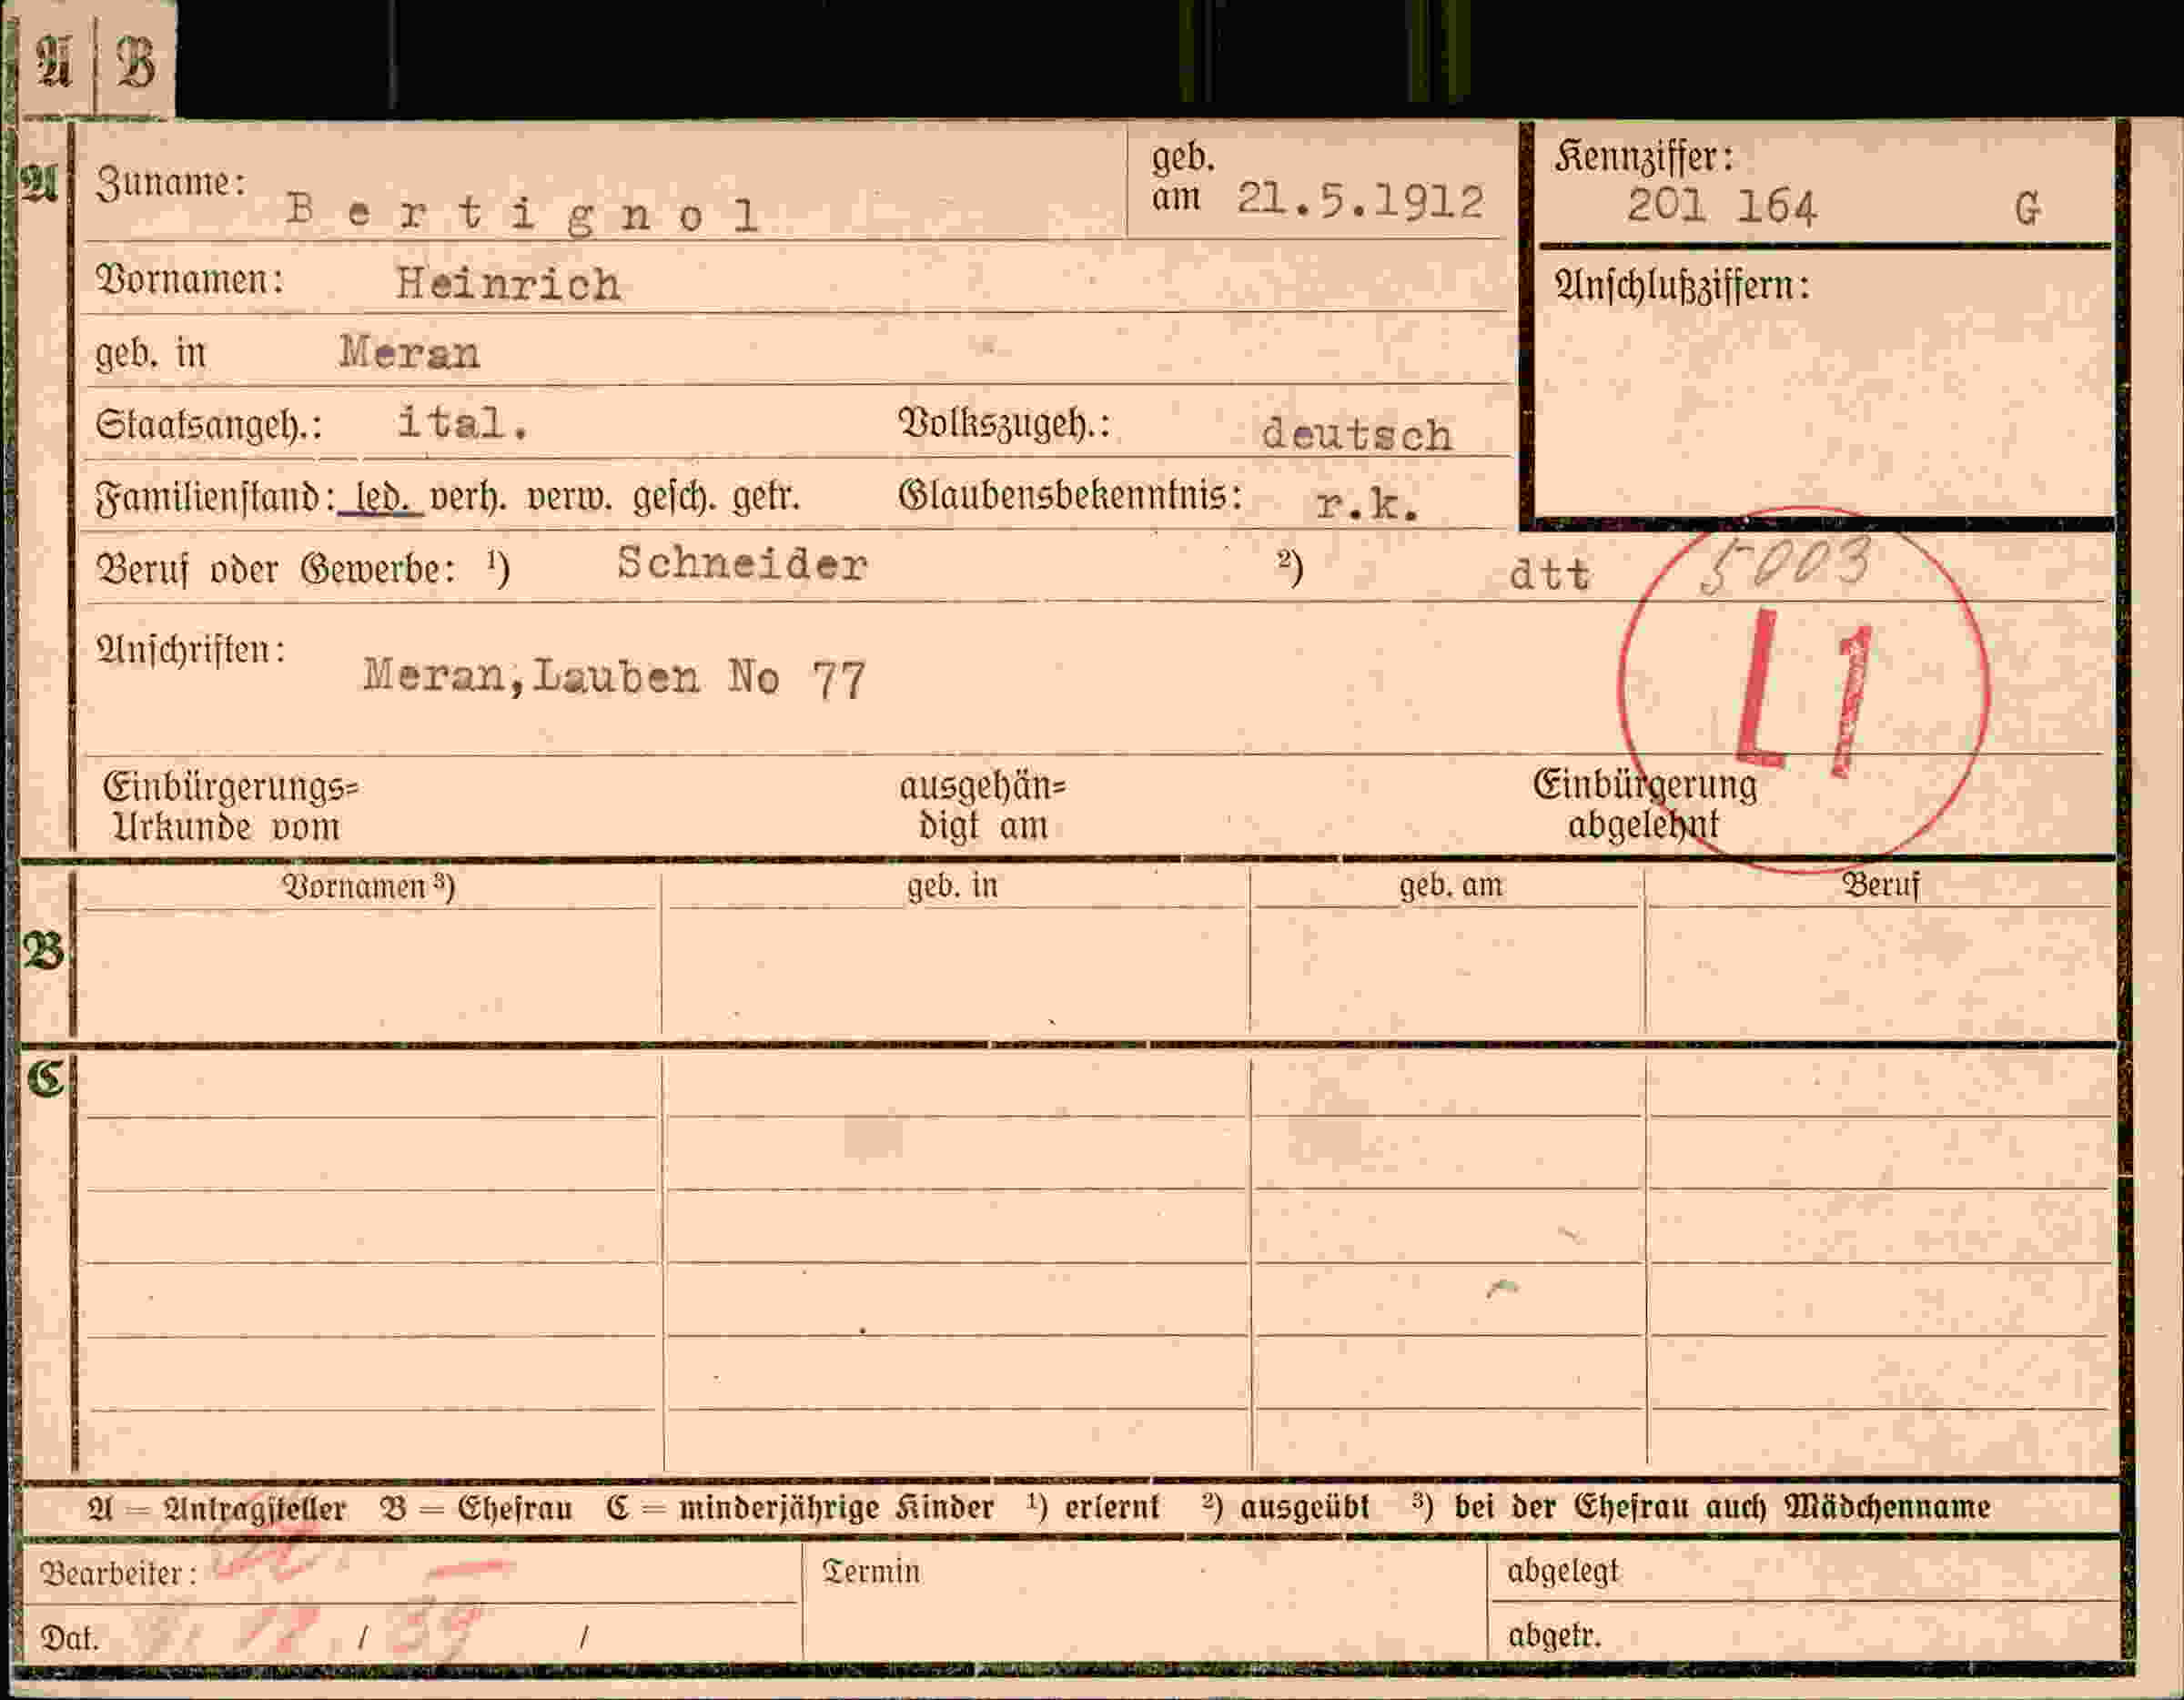 A B
A
Zuname: Bertignol geb. am 21.5.1912
Kennziffer: 201 164 G
Vornamen: Heinrich
Anschlußziffern:
geb. in Meran
Staatsangeh.: ital. Volkszugeh.: deutsch
Familienstand: led. verh. verw. gesch. getr. Glaubensbekenntnis: r.k.
Beruf oder Gewerbe: ¹) Schneider ²) dtt 5003
Anschriften: Meran,Lauben No 77
L 1
Einbürgerungs= ausgehän= Einbürgerung
Urkunde vom digt am abgelehnt
B
Vornamen ³) geb. in geb. am Beruf
C
A = Antragsteller B = Ehefrau C = minderjährige Kinder ¹) erlernt ²) ausgeübt ³) bei der Ehefrau auch Mädchenname
Bearbeiter: Termin abgelegt
Dat. / / abgetr.